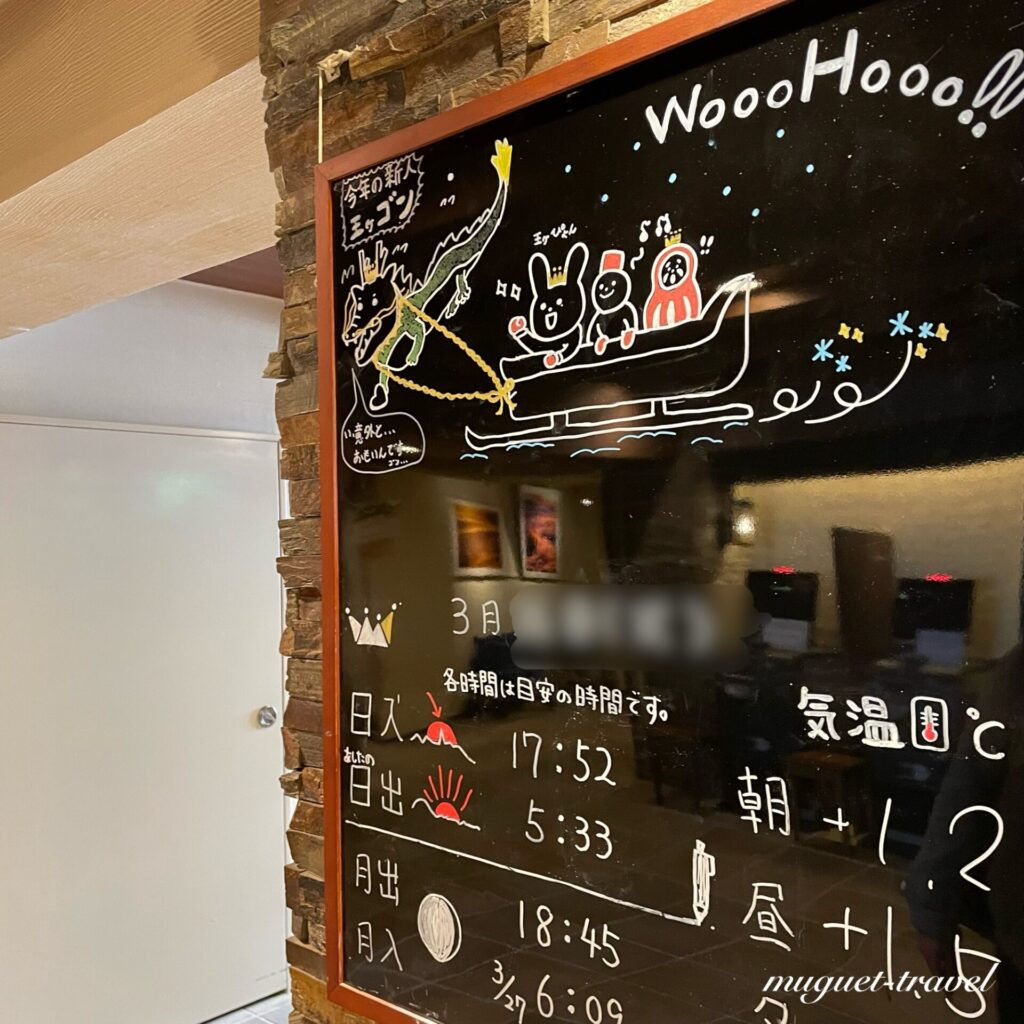 WoooHooo!!
今年の新人
玉ヶゴン
玉ヶぴょん
い、意外と...
おもいんです...
3月
各時間は目安の時間です。
日ズ 17:52
あしたの
日出 5:33
月出 18:45
月入 3/27 6:09
気温 ℃
朝 +1.2
昼 +1.5
夕
muguet-travel